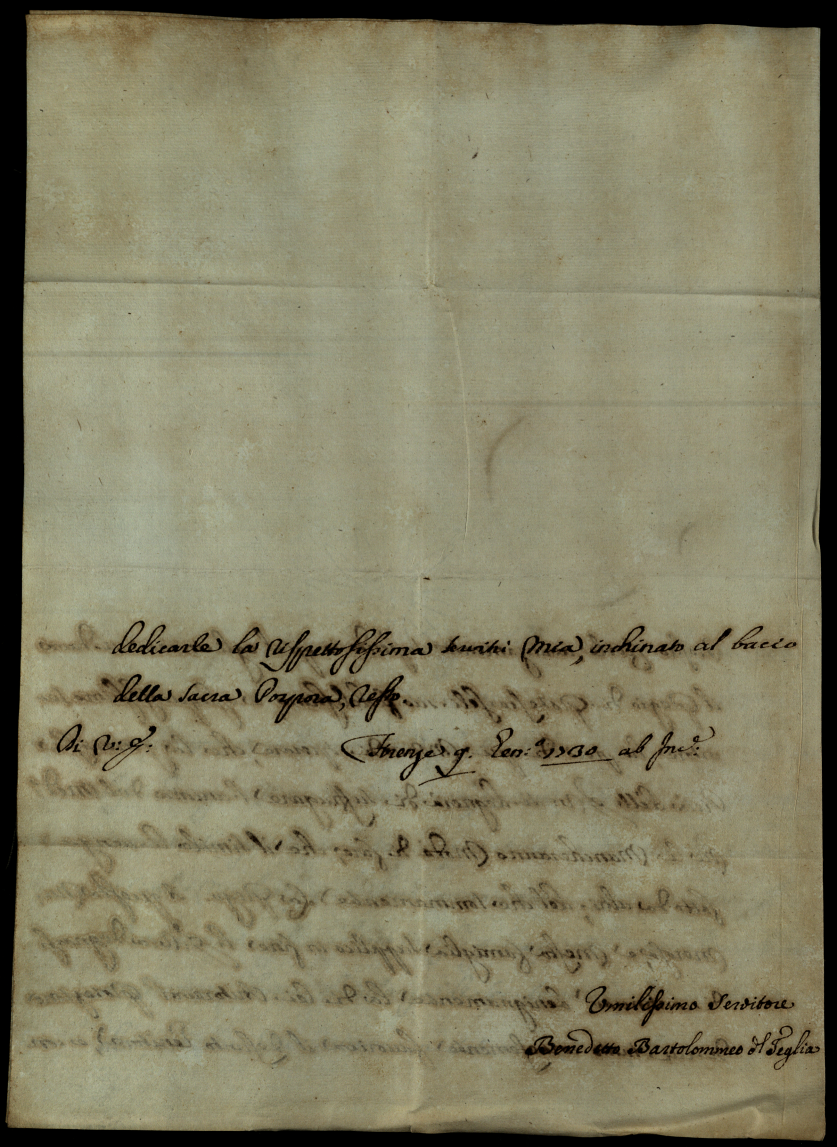 dedicarle la rispettosissima servitù mia, inchinato al bacio
della sacra Porpora, resto.
Di V: E: Firenze 9. Gen:º 1730 ab Inc:
Umilissimo Servitore
Benedetto Bartolommeo del Teglia